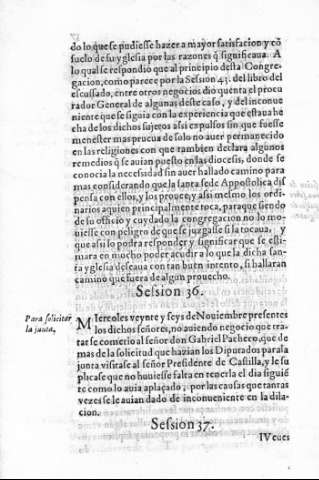 do lo que se pudiesse hazer a mayor satisfacion y cõ
suelo de su yglesia por las razones q̃ significaua. A
lo qual se respondio que al principio desta Congre-
gacion, como parece por la Session 43. del libro del
escussado, entre otros negocios dio quenta el procu
rador General de algunas deste caso, y del inconue
niente que se siguia con la experiencia que estaua he
cha de los dichos sujetos assi expulsos sin que fuesse
menester mas prueua de solo no auer permanecido
en las religiones con que tambien declara algunos
remedios q̃ se auian puesto en las diocesis, donde se
conocia la necessidad sin auer hallado camino para
mas considerando que la santa sede Appostolica dis
pensa con ellos, y los prouee, y assi mesmo los ordi-
narios a quien principalmente toca, para que siendo
de su officio y cuydado la congregacion no lo mo-
uiesse con peligro de que se juzgasse si la tocaua, y
que assi lo podra responder y significar que se esti-
mara en mucho poder acudir a lo que la dicha san-
ta yglesia desseaua con tan buen intento, si hallaran
camino que fuera de algun prouecho.
Session 36.
Para solicitar
la junta,
Miercoles veynte y seys de Nouiembre presentes
los dichos señores, no auiendo negocio que tra-
tar se cometio al señor don Gabriel Pacheco, que de
mas de la solicitud que hazian los Diputados para la
junta visitasse al señor Presidente de Castilla, y le su
plicasse que no huuiesse falta en tenerla el dia siguiẽ
te como lo auia aplaçado, por las causas que tantas
vezes se le auian dado de inconueniente en la dila-
cion.
Session 37.
IVeues